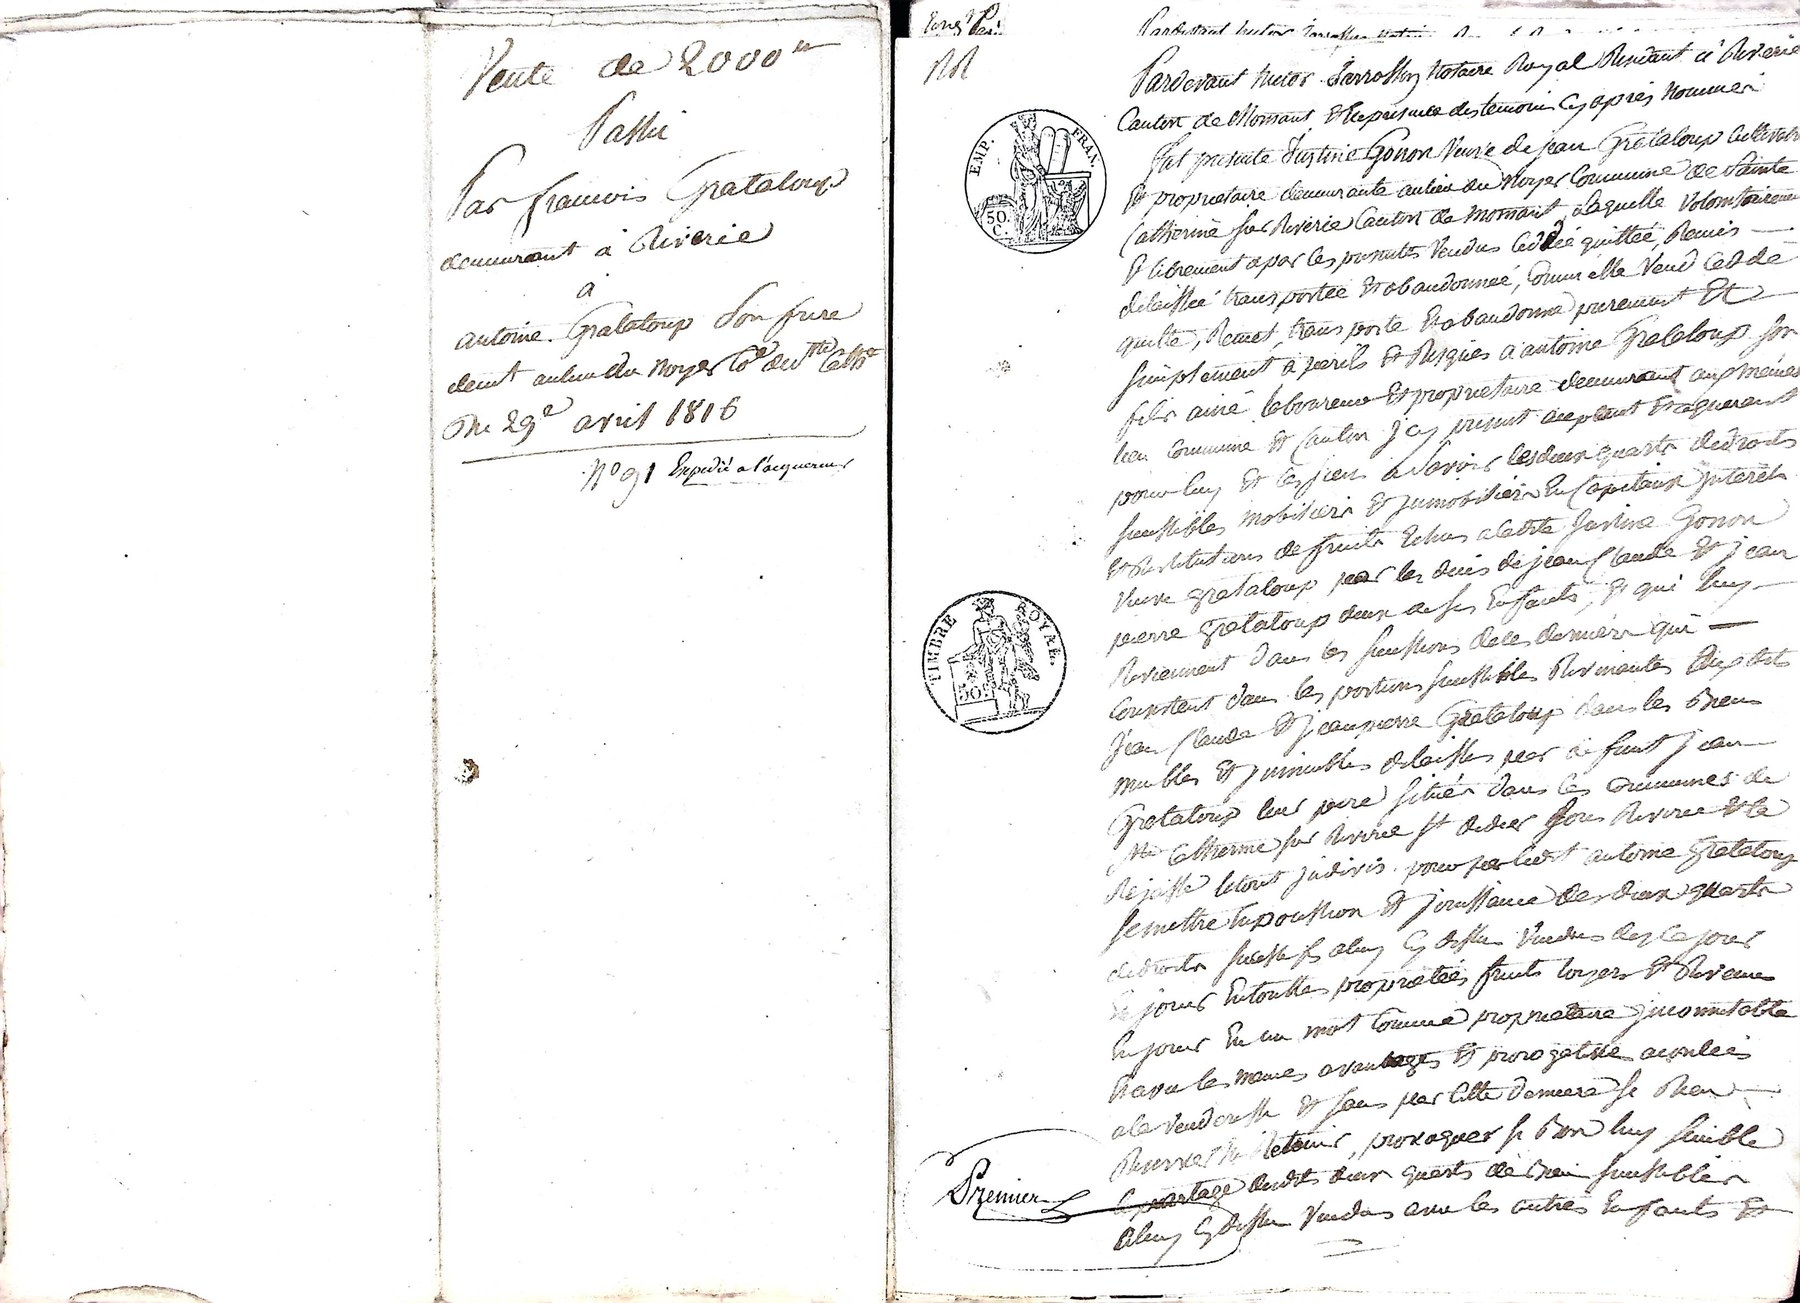 Vente de 2000 ##
Passée
Par françois Grataloup
demeurant à Riverie
a
antoine Grataloup Son frere
demt aulieu du noyer Cne de Ste Cathe
Du 29e avril 1816
No 91 Expedié a l'acquereur
Pardevant hector Jarrossay Notaire Royal Résidant à Riverie
Canton de Mornant Et En présence des temoins Cy après Nommés
Fut présente Justine Gonon Veuve de jean Grataloup Cultivatrice
Et proprietaire demeurante aulieu du Noyer Commune de Sainte
Catherine sur Riverie Canton de Mornant, laquelle Volontairement
Et librement a par les présentes Vendus Cédée quittée, Remis
délaissée transportée Et abandonnée, Comme elle Vend Cede
quitte, Remet, transporte Et abandonne purement Et
simplement à périls Et Risques a antoine Grataloup son
fils ainé laboureur Et proprietaire demeurant aux mêmes
lieu Commune Et Canton Jcy présent acceptant Et acquerant
pour luy Et les siens a Savoir les deux quarts dedroits
successibles mobiliers Et jmmobiliers En Capitaux Jnterêts
Et Restitutions de fruits Echus a ladite Justine Gonon
Veuve grataloup par les décès de jean Claude Et jean
pierre grataloup deux de ses Enfants, Et qui luy
Reviennent dans les successions de ces derniers qui
Consistent dans les portions successibles Revenantes auxdits
Jean Claude Et jean pierre Grataloup dans les Biens
meubles Et jmmeubles délaissés par défunt jean
Grataloup leur pere situés dans les Communes de
Ste Catherine sur Riverie St didier sous Riverie Et la
Rajasse letout jndivis. pour par ledit antoine grataloup
se mettre En possession Et jouissance des deux quarts
dedroits successifs aluy Cy dessus Vendus dez Ce jour
En jouir En touttes propriétés fruits loyers Et Revenus
En jouir En un mot Comme proprietaire jncommutable
Et avec les mêmes avantages Et prerogatives accordées
ala Venderesse Et sans par Cette derniere se Rien
Reserver Ni Retenir, provoquer si Bon luy semble
le partage desdits deux quarts de Bien successibles
aluy Cy dessus Vendus avec les autres Enfants Et
Premier
EMP. FRAN.
50 C.
TIMBRE ROYAL
50